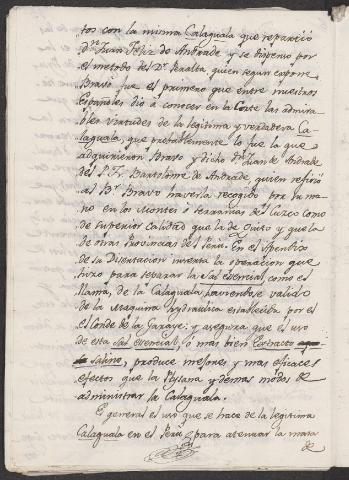 tos con la misma Calaguala que repartió
Dn. Juan Feliz de Andrade, y se dispensó por
el metodo del Dr. Peralta, quien segun expone
Bravo fue el primero que entre nuestros
Españoles dió à conocer en la Corte las admira-
bles virtudes de la legitima y verdadera Ca-
laguala, que probablemente lo fue la que
adquirieron Bravo y dicho Dn. Juan de Andrade
del P. Fr. Bartolome de Andrade, quien refirió
al Dr. Bravo haverla recogido por su ma-
no en los Montes ò Serranias del Cuzco como
de superior calidad que la de Quito y que la
de otras Provincias del Perú. En el Apendice
de su Disertacion inserta la operacion que
hizo para separar la Sal esencial, como el
llama, de la Calaguala haviendose valido
de la Maquina hydraulica establecida por el
el Conde de la Garaye; y asegura que el uso
de esta Sal esencial, ò mas bien Extracto
salino, produce mejores y mas eficaces
efectos que la Ptysana y demas modos de
administrar la Calaguala.
Es general el uso que se hace de la legitima
Calaguala en el Perú para atenuar la masa
de